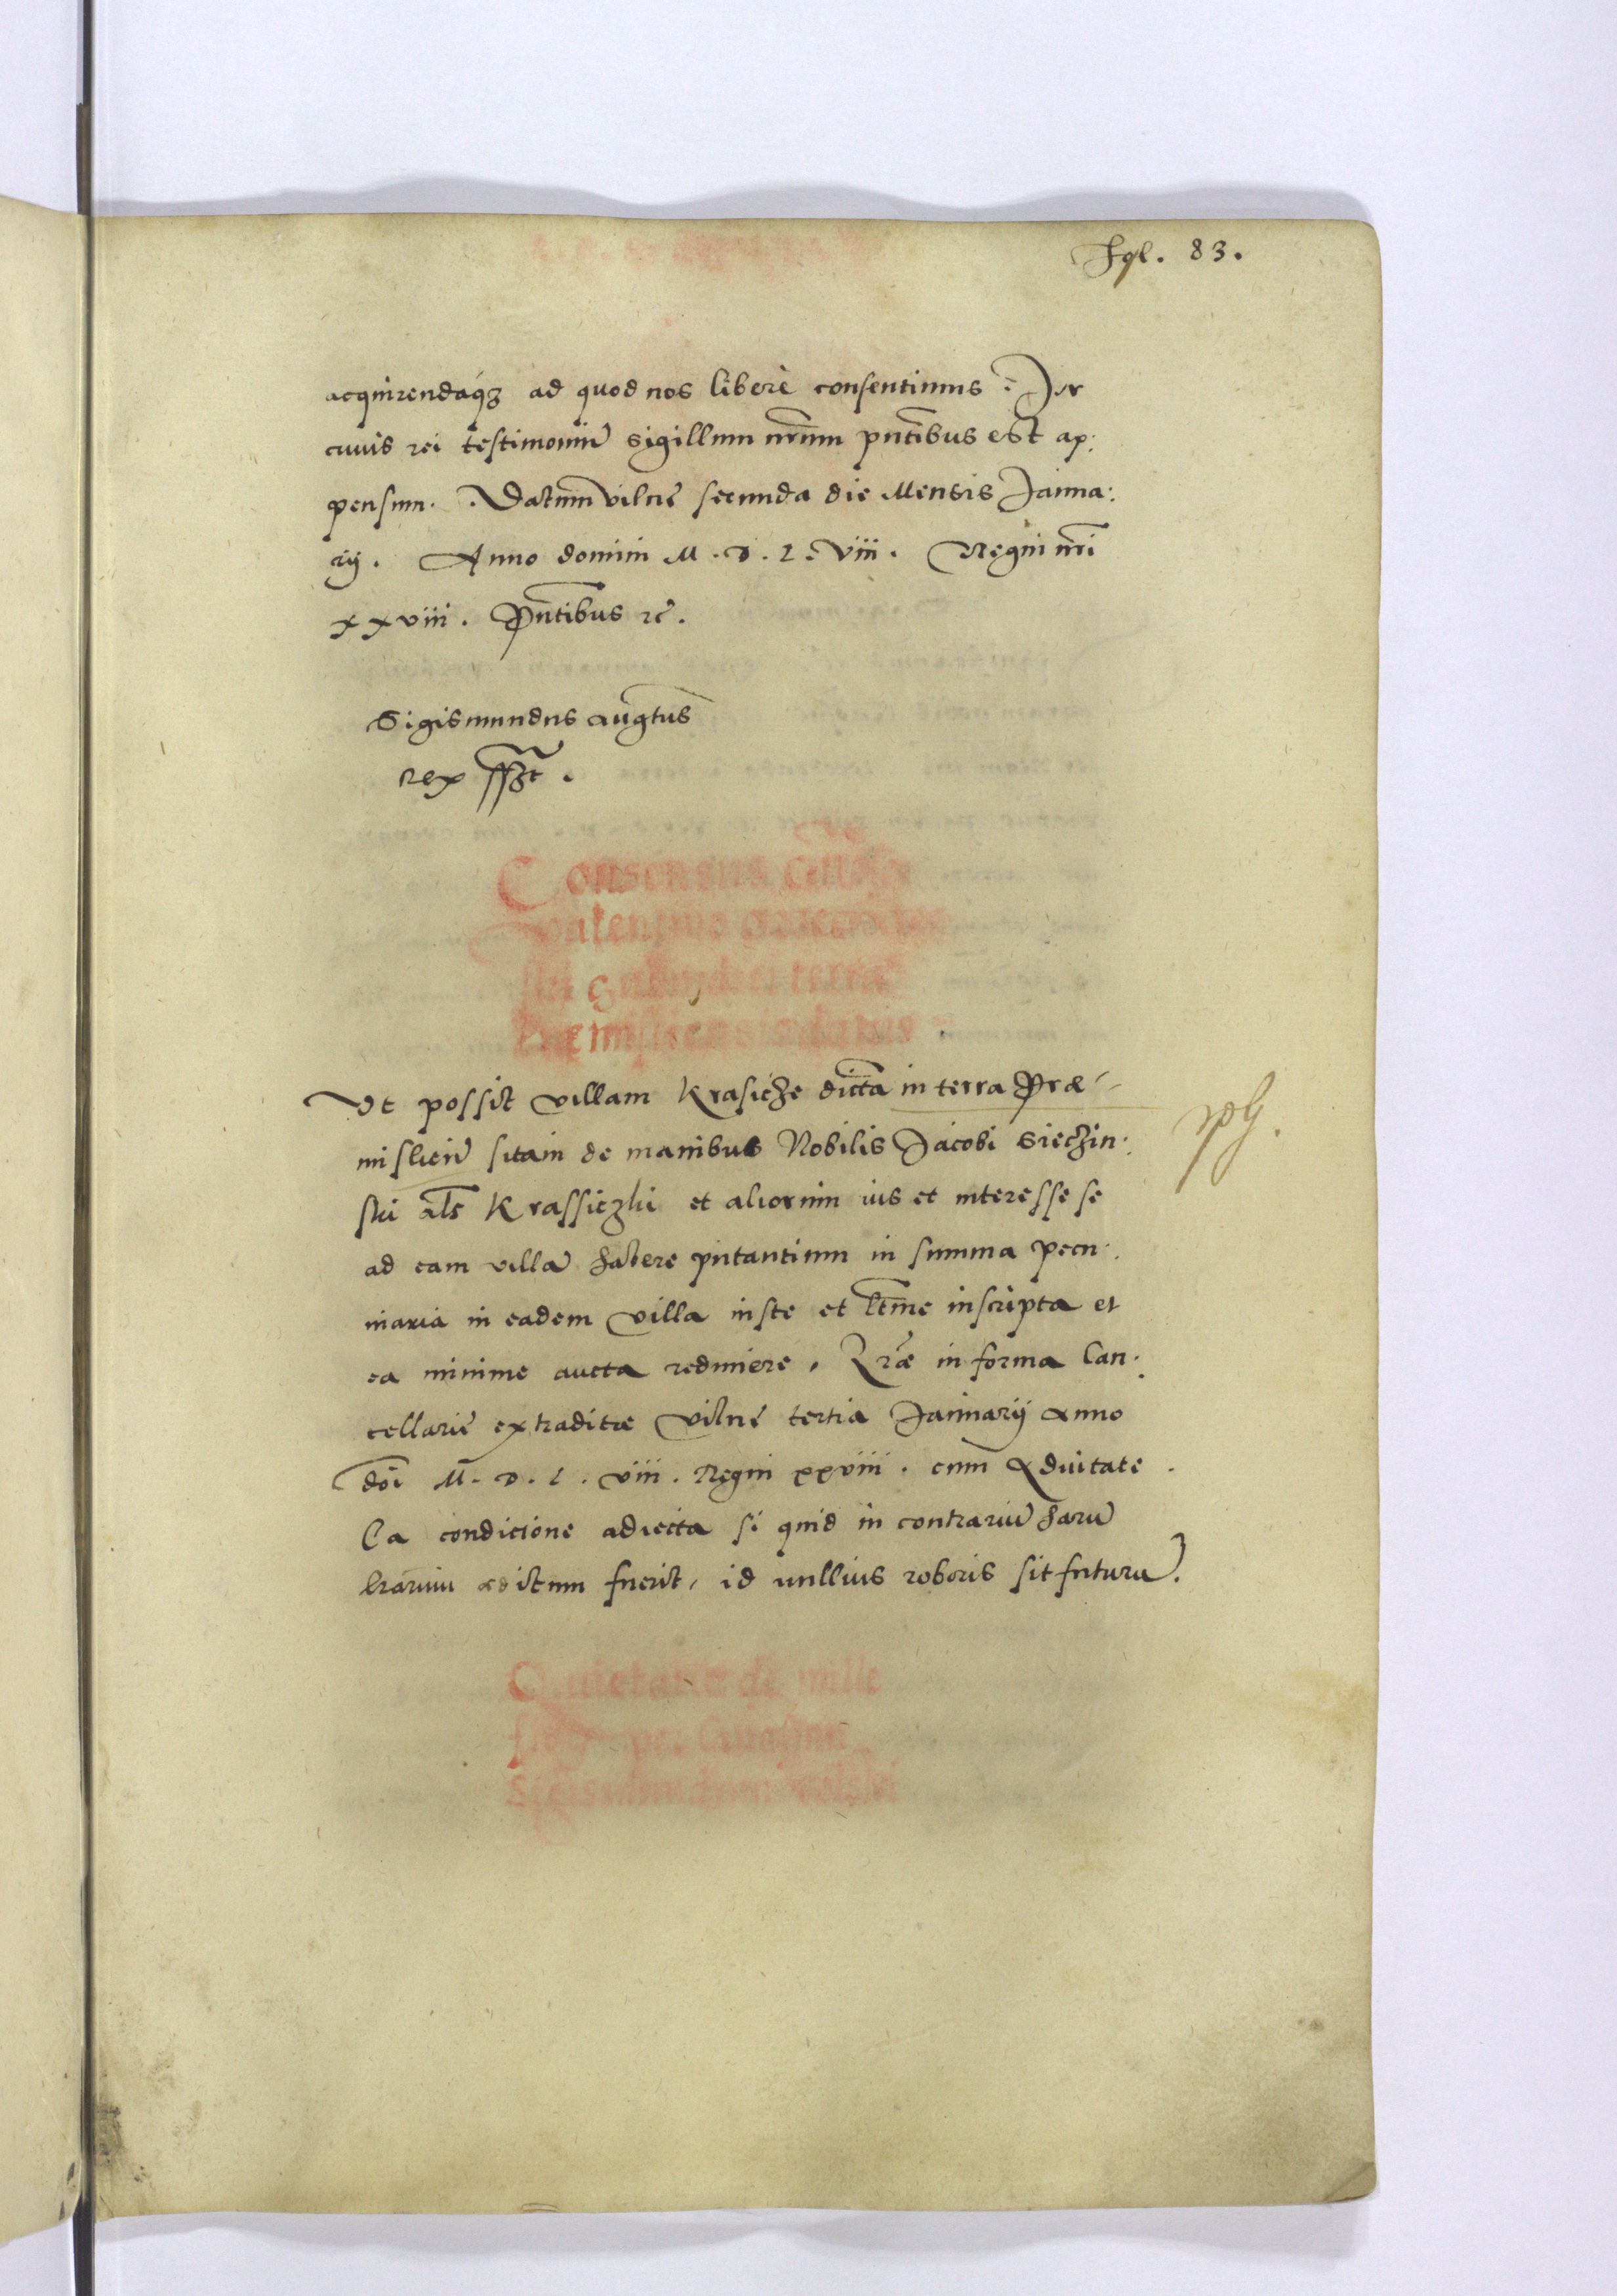 Fol. 83.
acquirendaq₃ ad quod nos liberè consentimus. In
cuius rei testimoniũ sigillum nr̃um pñtibus est ap:
pensum. Datum Vilnę secunda die Mensis Janua:
rij. Anno domini M. D. L. VIII. Regni nr̃i
xxviii. Pñtibus rc̃.
Sigismundus augtus
rex sszt.
Consensus
Valentino
terræ
Præmisliens
Vt possit villam Krasicze dictã in terra Præ-
misliẽn sitam de manibus Nobilis Jacobi Sieczin:
ski al̃s Krassiczki et aliorum ius et interesse se
ad eam villã habere putantium in summa pecu:
niaria in eadem villa iuste et ltm̃e inscripta et
ea minime aucta redimere, Lr̃æ in forma Can:
cellarię extraditæ Vilnę tertia Januarij Anno
dõi M. D. L. VIII. Regni xxviii. cum
Ea condicione adiecta si quid in contrariũ harũ
lrãrum æditum fuerit, id nullius roboris sit futurũ.
Quietatio de mille
per